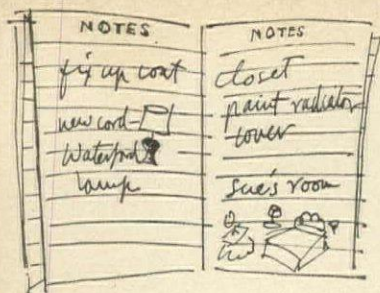 NOTES
fix up coat
new cord -
Waterford
lamp
NOTES
closet
paint radiator
cover
Sue's room